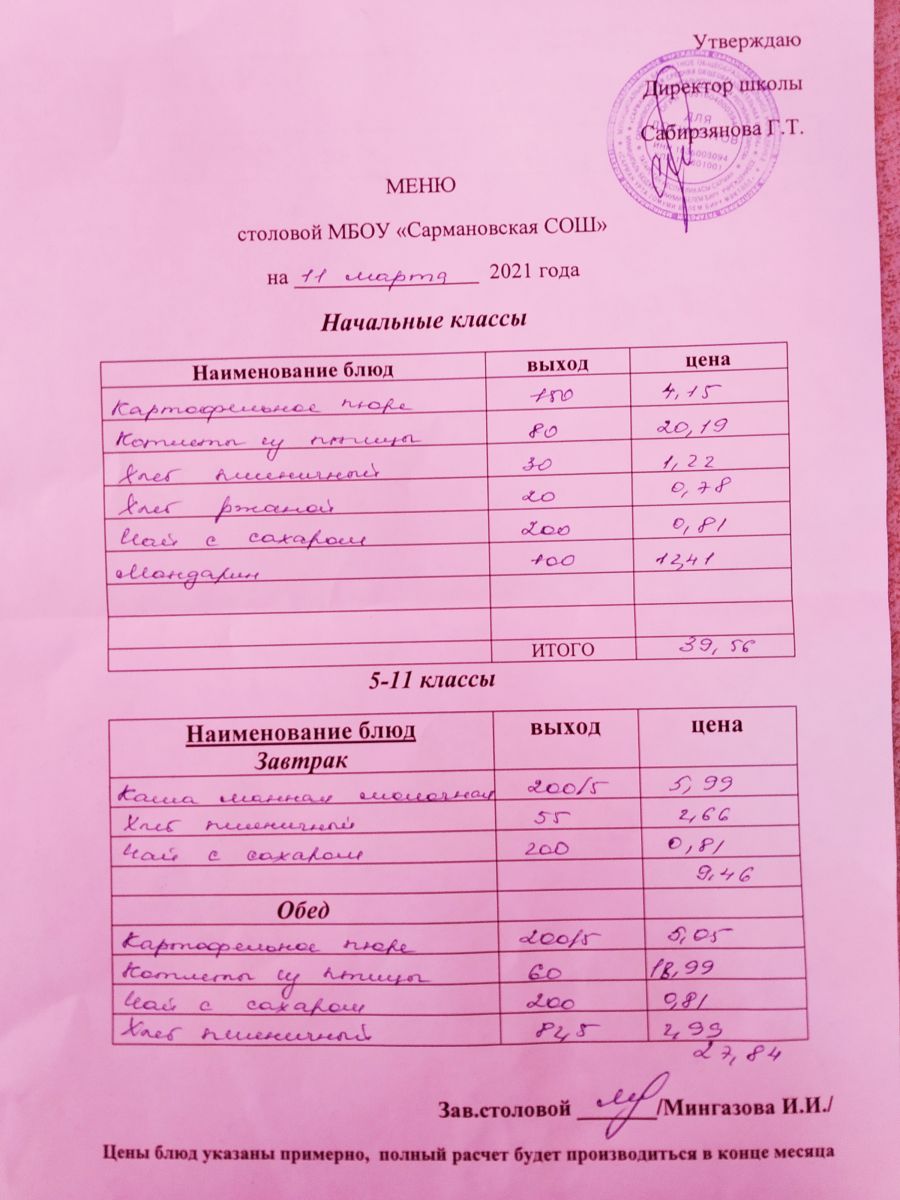 Утверждаю
Директор школы
Сабирзянова Г.Т.
ДЛЯ
МЕНЮ
столовой МБОУ «Сармановская СОШ»
на 11 марта 2021 года
Начальные классы
Наименование блюд выход цена
Картофельное пюре 150 4,15
Котлеты из птицы 80 20,19
Хлеб пшеничный 30 1,22
Хлеб ржаной 20 0,78
Чай с сахаром 200 0,81
Мандарин 100 12,41
ИТОГО 39,56
5-11 классы
Наименование блюд выход цена
Завтрак
Каша манная молочная 200/5 5,99
Хлеб пшеничный 55 2,66
Чай с сахаром 200 0,81
9,46
Обед
Картофельное пюре 200/5 5,05
Котлеты из птицы 60 18,99
Чай с сахаром 200 0,81
Хлеб пшеничный 82,5 2,99
27,84
Зав.столовой /Мингазова И.И./
Цены блюд указаны примерно, полный расчет будет производиться в конце месяца